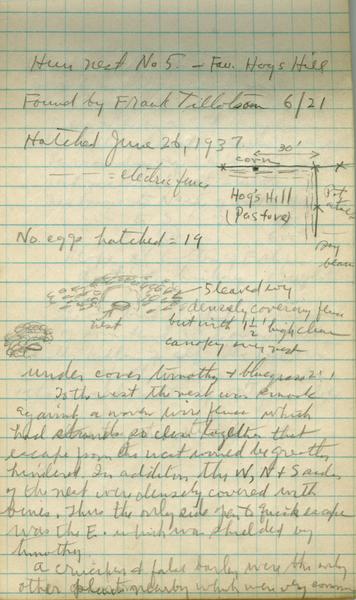 Hun nest No 5. - Fav. Hogs Hill
Found by Frank Tillotson 6/21
Hatched June 26, 1937
30'
corn
= electric fence
Hog's Hill
(Pasture)
soy
bean
No. eggs hatched = 19
5 leaved ivy
densely covering fence
but with 1 1/2' high clear
canopy over nest
nest
under cover timothy & bluegrass 2'
To the west the nest was smack
against a woven wire fence which
had strands so close together that
escape from the west would be greatly
hindered. In addition, the W, N & S sides
of the nest were densely covered with
vines. Thus the only side for quick escape
was the E. which was shielded by
timothy
a & false barley were the only
other plants nearby which were very common